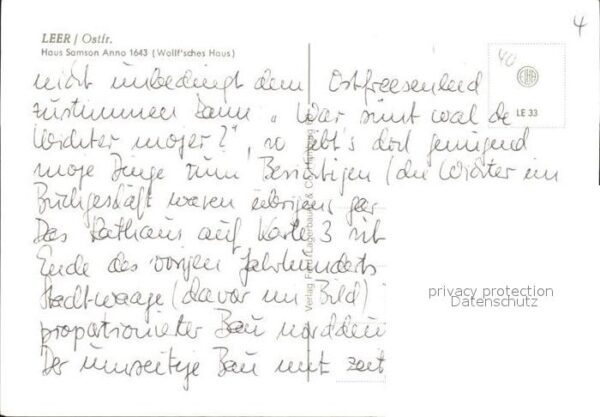 4
LEER / Ostfr.
Haus Samson Anno 1643 (Wolff'sches Haus)
40
LE 33
nicht unbedingt dem Ostfreesenleid
zustimmen kann „War sünt wal de
Wichter mojer?", so gibt's doch genügend
moje Dinge zum Besichtigen (die Wichter im
Buchgeschäft waren übrigens gar
Das Rathaus auf Karte 3 ist
Ende des vorigen Jahrhunderts
Stadtwaage (davor im Bild)
proportionierter Bau norddeu
Der unseitige Bau mit zeit
Verlag Foto-Lagerbauer & Co., Hamburg
privacy protection
Datenschutz